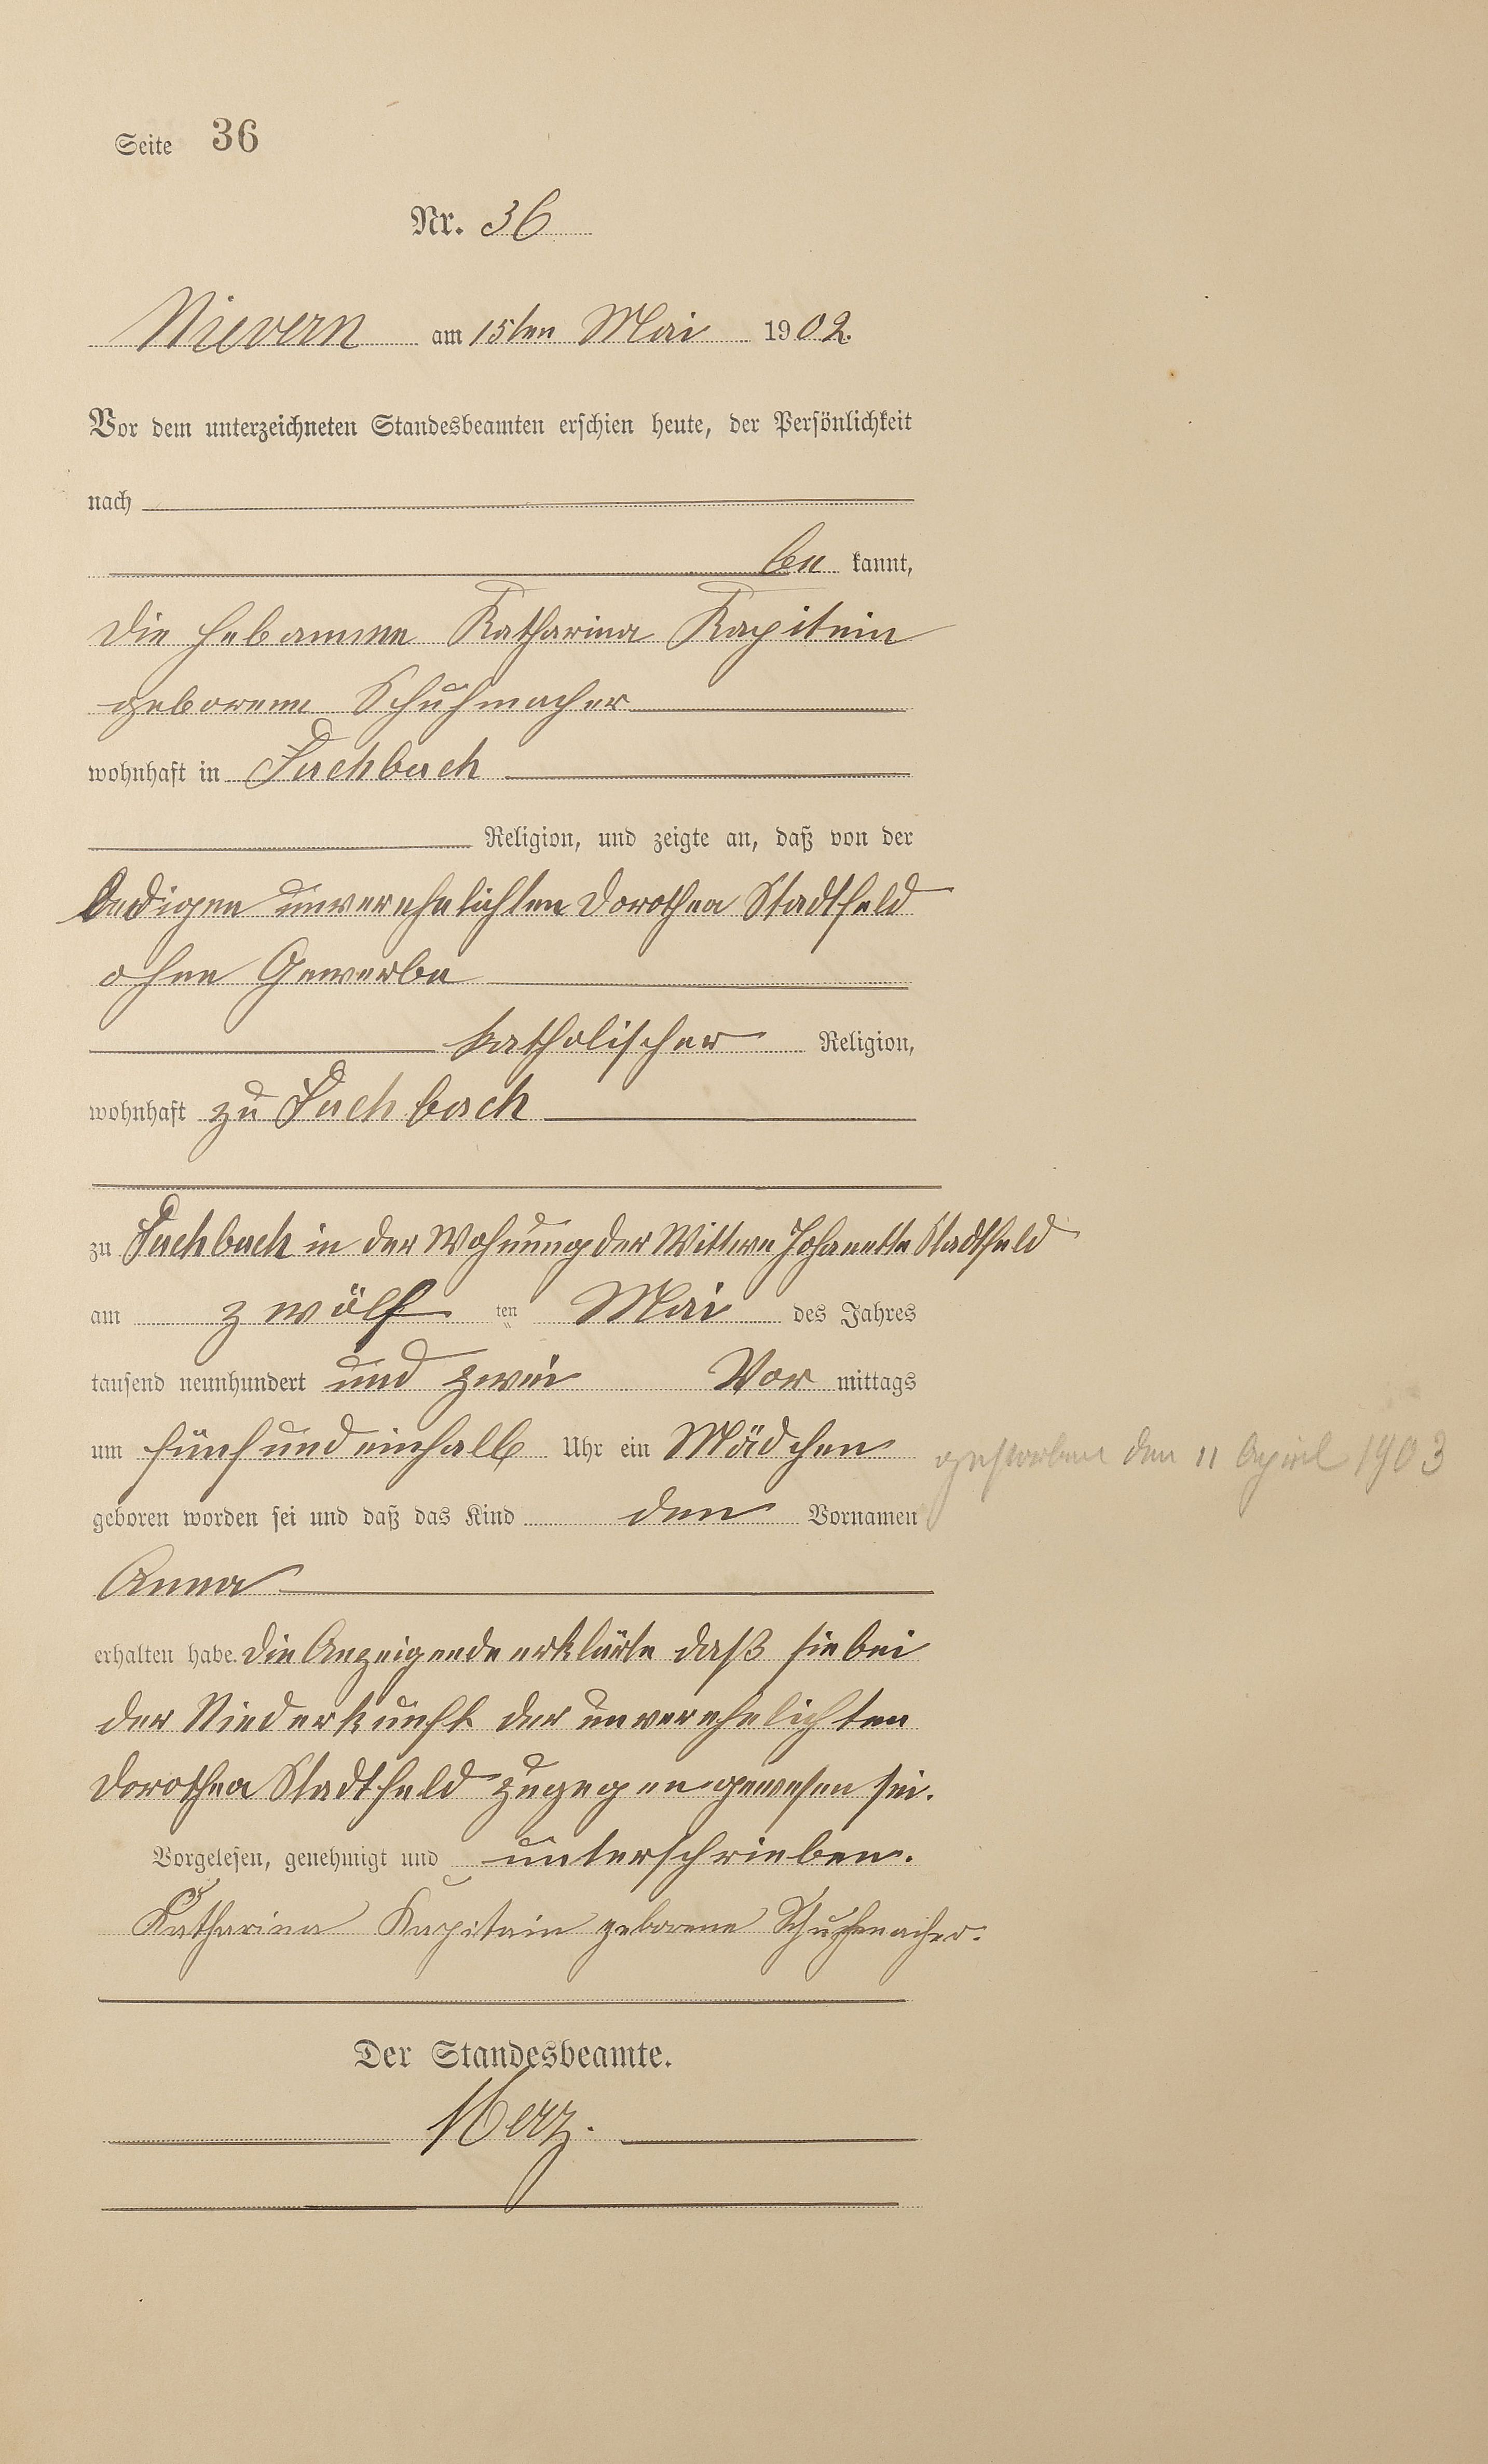 Seite 36
Nr. 36
Nievern am 15ten Mai 1902.
Vor dem unterzeichneten Standesbeamten erschien heute, der Persönlichkeit
nach
be kannt,
die Hebamme Katharina Kapitain
geborene Schuhmacher
wohnhaft in Fachbach
Religion, und zeigte an, daß von der
Ledigen unverehelichten Dorothea Stadtfeld
ohne Gewerbe
katholischer Religion,
wohnhaft zu Fachbach
zu Fachbach in der Wohnung der Wittwe Johanette Stadtfeld
am zwölf ten Mai des Jahres
tausend neunhundert und zwei Vor mittags
um fünf und einhalb Uhr ein Mädchen gestorben den 11 April 1903
geboren worden sei und daß das Kind den Vornamen
Anna
erhalten habe. Die Anzeigende erklärte daß sie bei
der Niederkunft der unverehelichten
Dorothea Stadtfeld zugegen gewesen sei.
Vorgelesen, genehmigt und unterschrieben.
Katharina Kapitain geborene Schuhmacher.
Der Standesbeamte.
Herz.